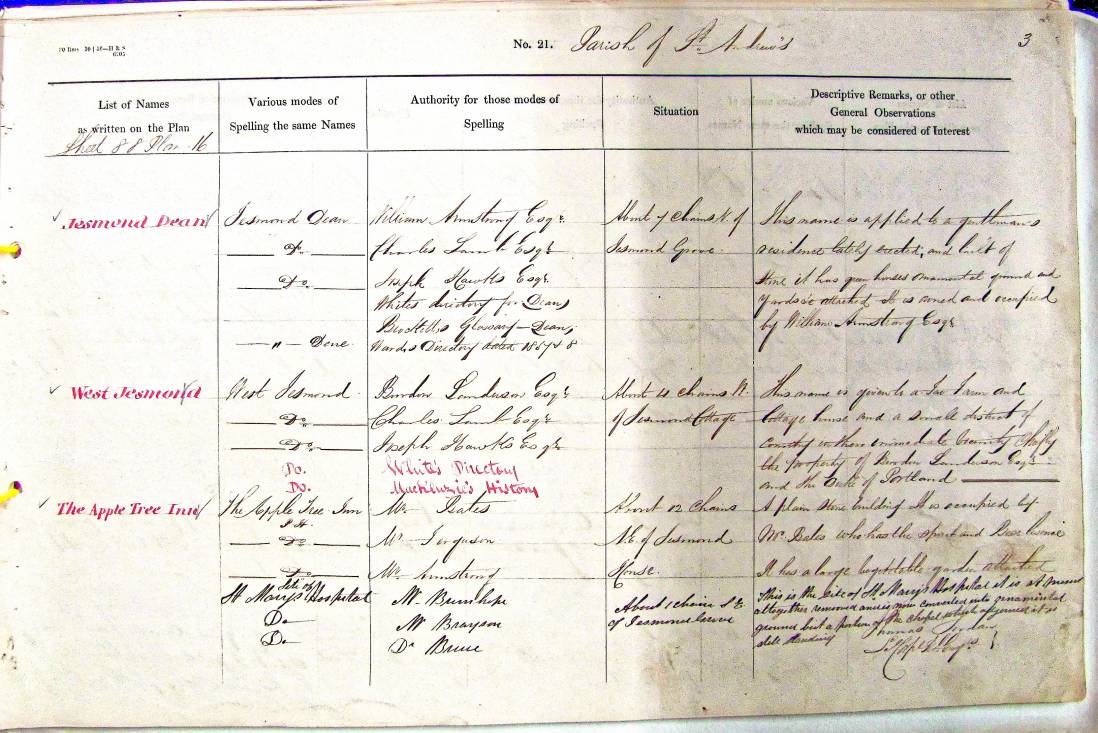 No. 21. Parish of St. Andrew's
3
List of Names
as written on the Plan
Sheet 88 Plan 16
Various modes of
Spelling the same Names
Authority for those modes of
Spelling
Situation
Descriptive Remarks, or other
General Observations
which may be considered of Interest
Jesmond Dean
Jesmond Dean
Do.
Do.
— " — Dene
William Armstrong Esqr.
Charles Lamb Esqr.
Joseph Hawks Esqr.
Whites directory for Dean,
Brocketts Glossary — Dean,
Wards Directory dated 1857 & 8
About 7 Chains N. of
Jesmond Grove.
This name is applied to a gentleman's
residence lately erected, and built of
Stone it has green houses ornamental ground and
Yards &c attached It is owned and occupied
by William Armstrong Esqr
West Jesmond
West Jesmond
Do.
Do.
Do.
Do.
Burdon Sanderson Esqr.
Charles Lamb Esqr.
Joseph Hawks Esqr
White's Directory
Mackenzie's History
About 4 chains N.
of Jesmond Cottage
This name is given to a Farm and
Cottage house and a small district of
country in there immediate vicinity chiefly
the property of Burdon Sanderson Esqr
and the Duke of Portland
The Apple Tree Inn
The Apple Tree Inn
P.H.
Do.
Do.
Mr. Bates
Mr. Ferguson
Mr. Armstrong
About 12 Chains
N.E of Jesmond
House.
A plain Stone building It is occupied by
Mr. Bates who has the spirit and Beer licence
It has a large vegetable garden attached
Site of
St Mary's Hospital
Do
Do
Mr Burnhope
Mr Brayson
Dr Bruce
About 1 chain S.E
of Jesmond Grove
This is the Site of St. Mary's Hospital it is at present
altogether removed and is now converted into ornamental
ground but a portion of the chapel which adjoined it is
still standing